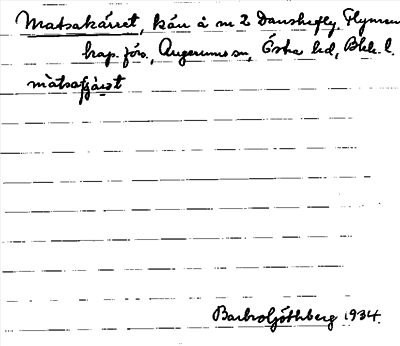 Matsakärret, kärr å nr 2 Danskefly, Flymen
kap. förs., Augerums sn, Östra hd, Blek. l.
màtsaʃæ̀rət
Barbro Göthberg 1934.